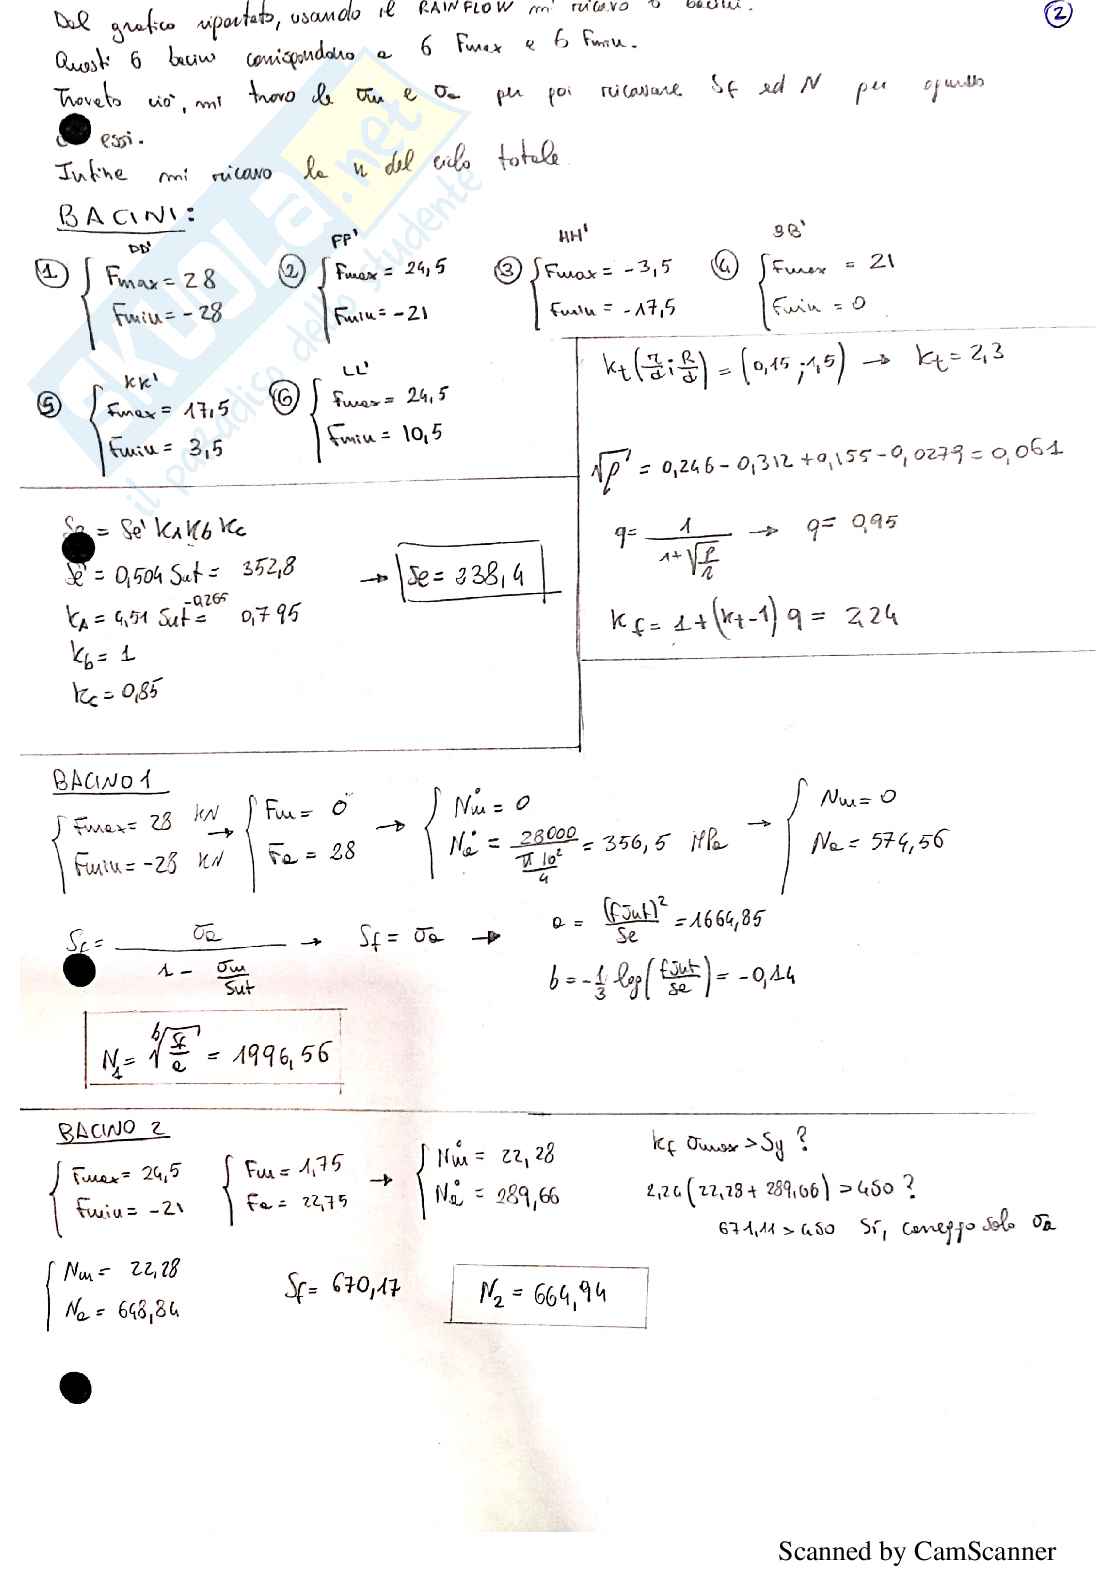 Dal grafico riportato, usando il RAINFLOW mi ricavo 6 bacini.
2
Questi 6 bacini corrispondono a 6 Fmax e 6 Fmin.
Trovato ciò, mi trovo le σm e σa per poi ricavare Sf ed N per ognuno
essi.
Infine mi ricavo la n del ciclo totale.
BACINI:
DD'
FF'
HH'
BB'
1 Fmax = 28
Fmin = -28
2 Fmax = 24,5
Fmin = -21
3 Fmax = -3,5
Fmin = -17,5
4 Fmax = 21
Fmin = 0
KK'
LL'
5 Fmax = 17,5
Fmin = 3,5
6 Fmax = 24,5
Fmin = 10,5
kt(r/d ; R/d) = (0,15 ; 1,5) → kt = 2,3
√ρ' = 0,246 - 0,312 + 0,155 - 0,0279 = 0,061
q = 1/(1+√(ρ/r)) → q = 0,95
kf = 1 + (kt-1) q = 2,24
= Se' KA Kb Kc
Se' = 0,504 Sut = 352,8
→ Se = 238,4
KA = 4,51 Sut^-0,265 = 0,795
kb = 1
Kc = 0,85
BACINO 1
Fmax = 28 kN
Fmin = -28 kN
→ Fm = 0
Fa = 28
→ Nm° = 0
Na° = 28000/(π 10²/4) = 356,5 MPa
→ Nm = 0
Na = 574,56
Sf = σa/(1 - σm/Sut) → Sf = σa →
a = (f Sut)²/Se = 1664,85
b = -1/3 log(f Sut/Se) = -0,14
N1 = ᵇ√(Sf/a) = 1996,56
BACINO 2
Fmax = 24,5
Fmin = -21
Fm = 1,75
Fa = 22,75
→ Nm° = 22,28
Na° = 289,66
kf σmax > Sy ?
2,24 (22,28 + 289,66) > 450 ?
671,11 > 450 Sì, correggo solo σa
Nm = 22,28
Na = 648,84
Sf = 670,17
N2 = 664,94
SKUOLA.net
il paradiso dello studente
Scanned by CamScanner